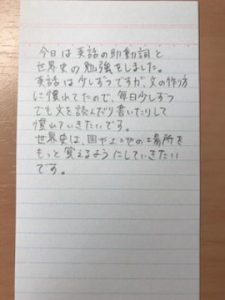 今日は英語の助動詞と
世界史の勉強をしました。
英語は少しずつですが、文の作り方
に慣れてたので、毎日少しずつ
でも文を読んだり書いたりして
慣れていきたいです。
世界史は、国や土地の場所を
もっと覚えるようにしていきたい
です。